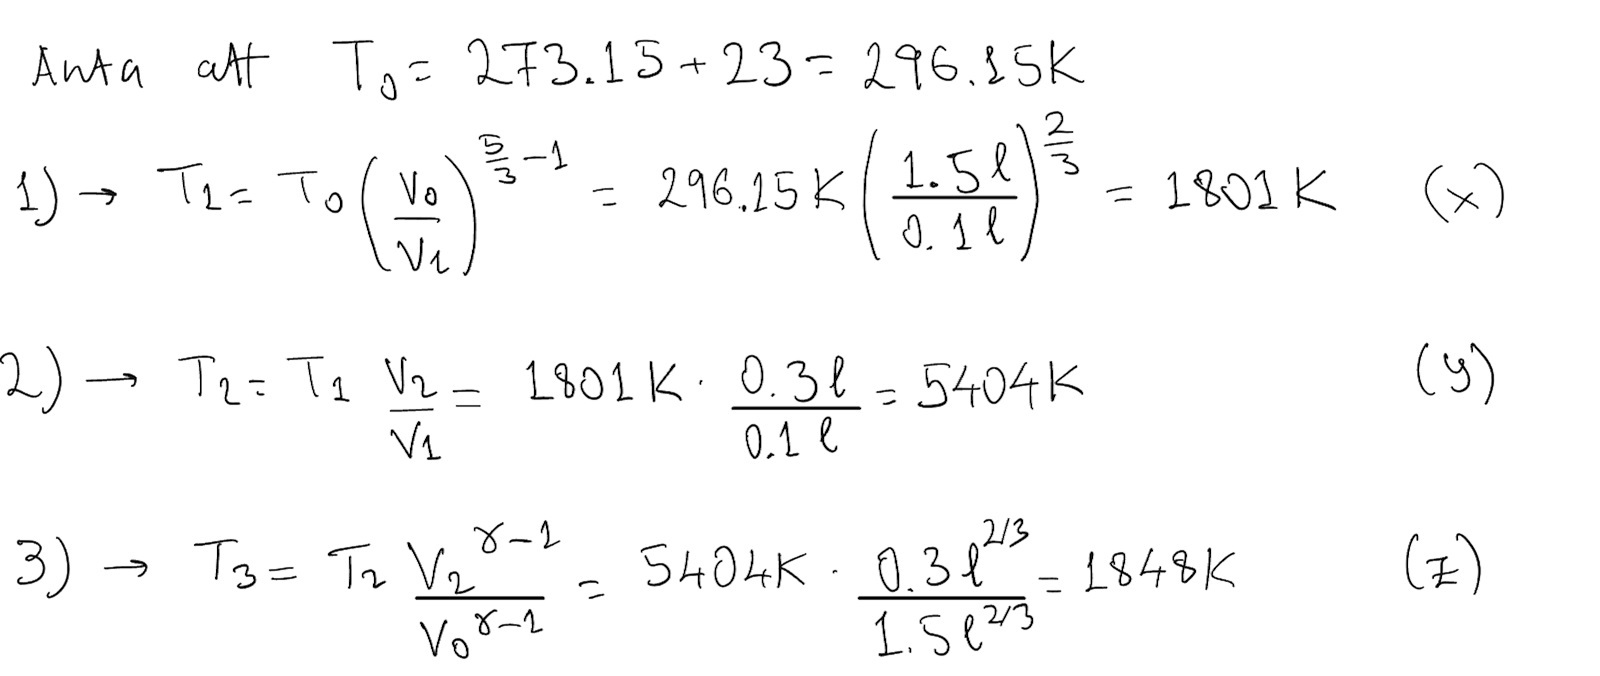 Anta att T₀ = 273.15 + 23 = 296.15K
1) → T₁ = T₀ (V₀/V₁)^(5/3 - 1) = 296.15K (1.5l/0.1l)^(2/3) = 1801K (x)
2) → T₂ = T₁ V₂/V₁ = 1801K · 0.3l/0.1l = 5404K (y)
3) → T₃ = T₂ V₂^(γ-1)/V₀^(γ-1) = 5404K · 0.3l^(2/3)/1.5l^(2/3) = 1848K (z)